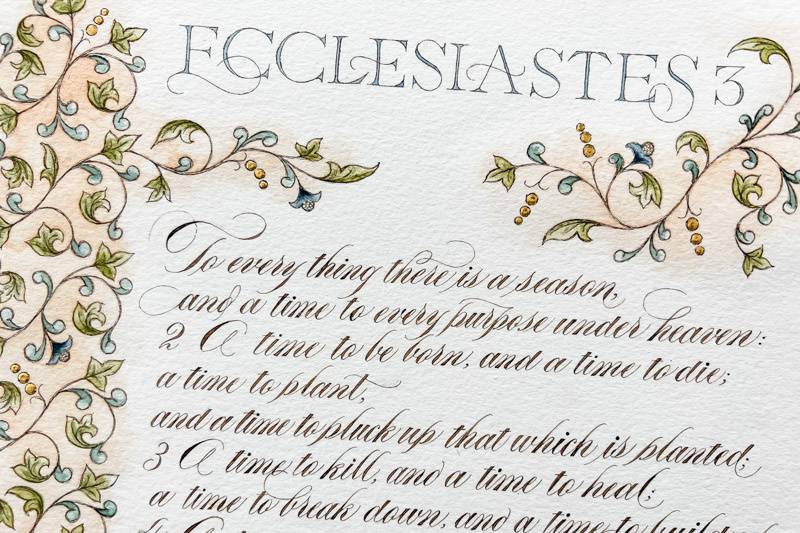 ECCLESIASTES 3
To every thing there is a season,
and a time to every purpose under heaven:
2 A time to be born, and a time to die;
a time to plant,
and a time to pluck up that which is planted;
3 A time to kill, and a time to heal;
a time to break down, and a time to build